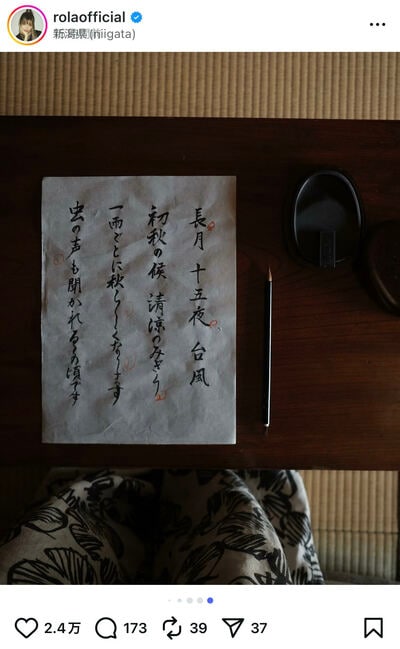 rolaofficial
新潟県 (niigata)
長月 十五夜 台風
初秋の候 清涼のみぎり
一雨ごとに秋らしくなります
虫の声も聞かれるこの頃です
2.4万
173
39
37